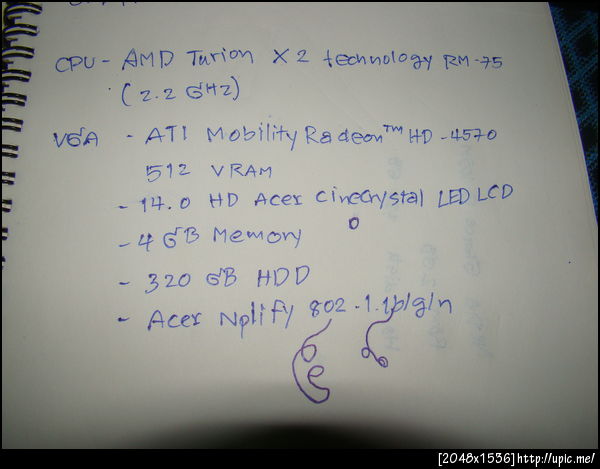 CPU - AMD Turion X2 technology RM-75
(2.2 GHz)
VGA - ATI Mobility Radeon™ HD-4570
512 VRAM
- 14.0 HD Acer CineCrystal LED LCD
- 4 GB Memory
- 320 GB HDD
- Acer Nplify 802.1.1b/g/n
[2048x1536]http://upic.me/